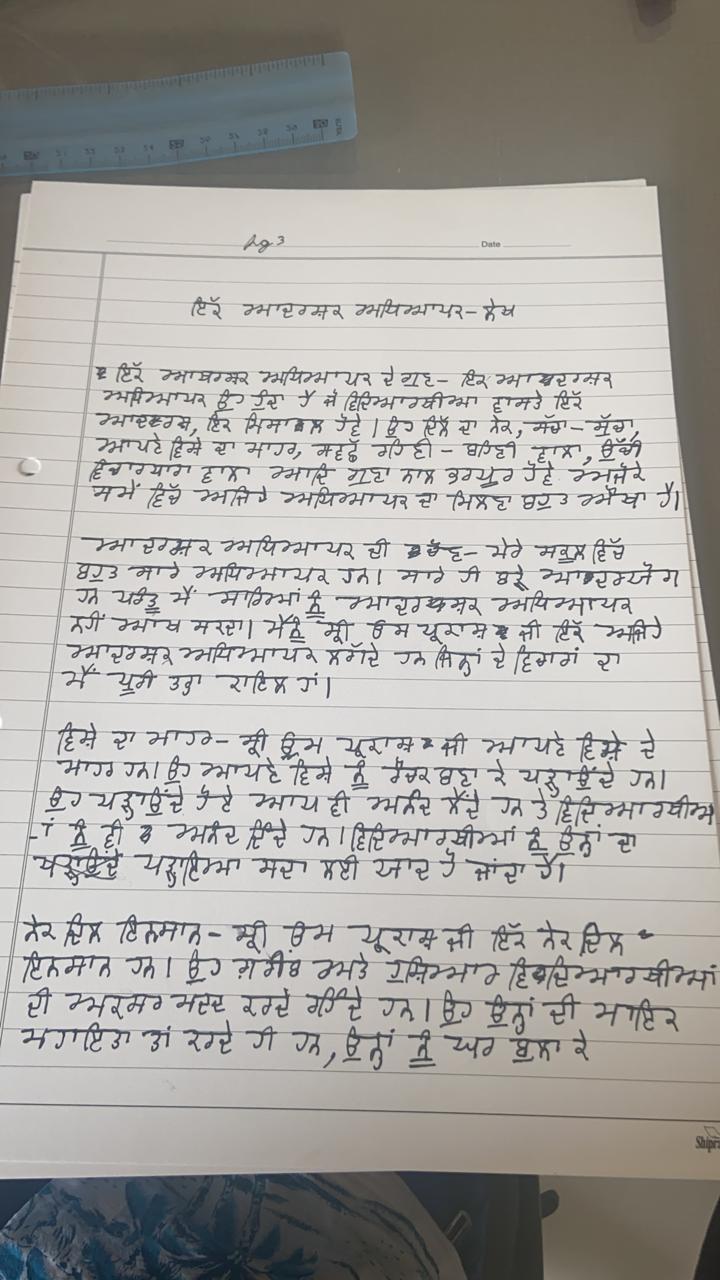 pg 3
Date
ਇੱਕ ਆਦਰਸ਼ਕ ਅਧਿਆਪਕ - ਲੇਖ
ਇੱਕ ਆਦਰਸ਼ਕ ਅਧਿਆਪਕ ਦੇ ਗੁਣ - ਇਕ ਆਦਰਸ਼ਕ
ਅਧਿਆਪਕ ਉਹ ਹੁੰਦਾ ਹੈ ਜੋ ਵਿਦਿਆਰਥੀਆਂ ਵਾਸਤੇ ਇੱਕ
ਆਦਰਸ਼, ਇਕ ਮਿਸਾਲ ਹੋਵੇ। ਉਹ ਦਿਲ ਦਾ ਨੇਕ, ਸੱਚਾ - ਸੁੱਚਾ,
ਆਪਣੇ ਵਿਸ਼ੇ ਦਾ ਮਾਹਰ, ਸਵਛੱ ਰਹਿਣੀ - ਬਹਿਣੀ ਵਾਲਾ, ਉੱਚੀ
ਵਿਚਾਰਧਾਰਾ ਵਾਲਾ ਆਦਿ ਗੁਣਾ ਨਾਲ ਭਰਪੂਰ ਹੋਵੇ ਅਜੋਕੇ
ਸਮੇਂ ਵਿੱਚ ਅਜਿਹੇ ਅਧਿਆਪਕ ਦਾ ਮਿਲਣਾ ਬਹੁਤ ਔਖਾ ਹੈ।
ਆਦਰਸ਼ਕ ਅਧਿਆਪਕ ਦੀ ਚੋਣ - ਮੇਰੇ ਸਕੂਲ ਵਿੱਚ
ਬਹੁਤ ਸਾਰੇ ਅਧਿਆਪਕ ਹਨ। ਸਾਰੇ ਹੀ ਬੜੇ ਆਦਰਯੋਗ
ਹਨ ਪਰੰਤੂ ਮੈਂ ਸਾਰਿਆਂ ਨੂੰ ਆਦਰਸ਼ਕ ਅਧਿਆਪਕ
ਨਹੀਂ ਆਖ ਸਕਦਾ। ਮੈਨੂੰ ਸ੍ਰੀ ਓਮ ਪ੍ਰਕਾਸ਼ ਜੀ ਇੱਕ ਅਜਿਹੇ
ਆਦਰਸ਼ਕ ਅਧਿਆਪਕ ਲੱਗਦੇ ਹਨ ਜਿਨ੍ਹਾਂ ਦੇ ਵਿਚਾਰਾਂ ਦਾ
ਮੈਂ ਪੂਰੀ ਤਰ੍ਹਾਂ ਕਾਇਲ ਹਾਂ।
ਵਿਸ਼ੇ ਦਾ ਮਾਹਰ - ਸ੍ਰੀ ਓਮ ਪ੍ਰਕਾਸ਼ ਜੀ ਆਪਣੇ ਵਿਸ਼ੇ ਦੇ
ਮਾਹਰ ਹਨ। ਉਹ ਆਪਣੇ ਵਿਸ਼ੇ ਨੂੰ ਰੌਚਕ ਬਣਾ ਕੇ ਪੜ੍ਹਾਉਂਦੇ ਹਨ।
ਉਹ ਪੜ੍ਹਾਉਂਦੇ ਹੋਏ ਆਪ ਵੀ ਅਨੰਦ ਲੈਂਦੇ ਹਨ ਤੇ ਵਿਦਿਆਰਥੀਆ
-ਂ ਨੂੰ ਵੀ ਅਨੰਦ ਦਿੰਦੇ ਹਨ। ਵਿਦਿਆਰਥੀਆਂ ਨੂੰ ਉਨ੍ਹਾਂ ਦਾ
ਪੜ੍ਹਾਇਆ ਸਦਾ ਲਈ ਯਾਦ ਹੋ ਜਾਂਦਾ ਹੈ।
ਨੇਕ ਦਿਲ ਇਨਸਾਨ - ਸ੍ਰੀ ਓਮ ਪ੍ਰਕਾਸ਼ ਜੀ ਇੱਕ ਨੇਕ ਦਿਲ
ਇਨਸਾਨ ਹਨ। ਉਹ ਗ਼ਰੀਬ ਅਤੇ ਹੁਸ਼ਿਆਰ ਵਿਦਿਆਰਥੀਆਂ
ਦੀ ਅਕਸਰ ਮਦਦ ਕਰਦੇ ਰਹਿੰਦੇ ਹਨ। ਉਹ ਉਨ੍ਹਾਂ ਦੀ ਮਾਇਕ
ਸਹਾਇਤਾ ਤਾਂ ਕਰਦੇ ਹੀ ਹਨ, ਉਨ੍ਹਾਂ ਨੂੰ ਘਰ ਬੁਲਾ ਕੇ